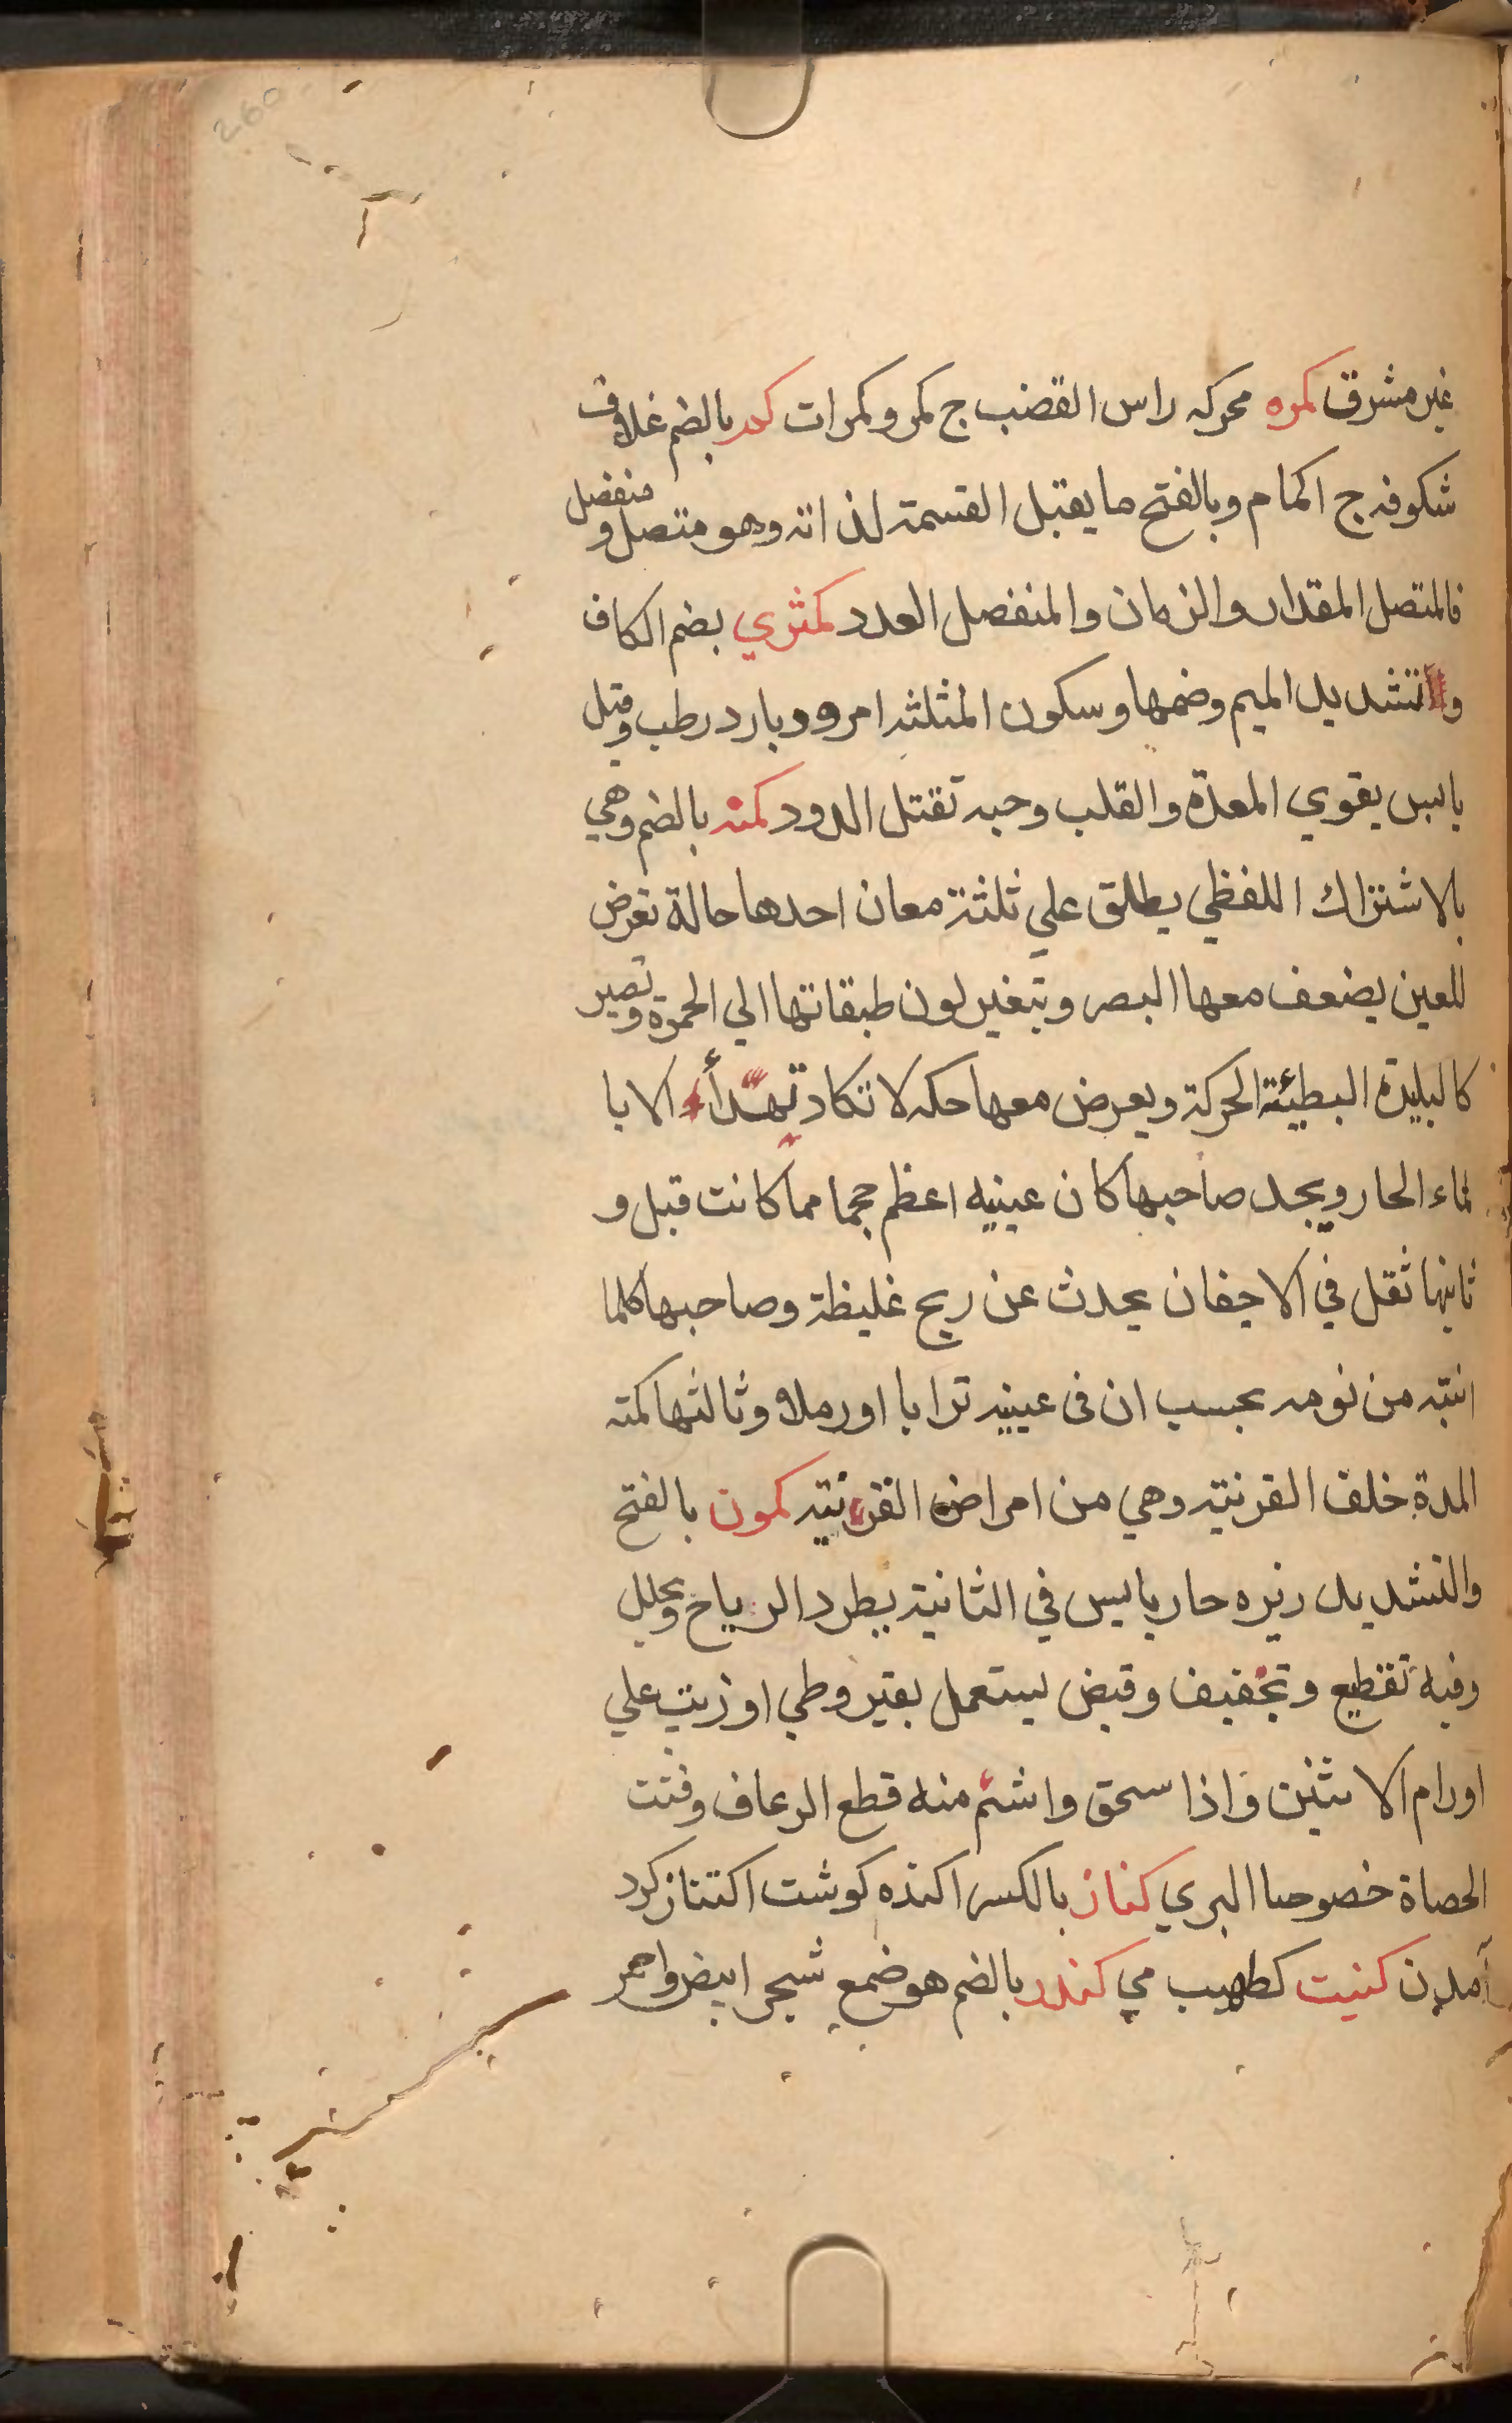 260
غير مشرق كمره محركه راس القضب ج كمر و كمرات كم بالضم غلاف
شكوفه ج اكمام وبالفتح ما يقبل القسمة لذاته وهو متصل و منفصل
فالمتصل المقدار والزمان والمنفصل العدد كمثري بضم الكاف
وتشديد الميم وضمها وسكون المثلثه امرود بارد رطب وقيل
يابس يقوي المعدة والقلب وحبه تقتل الدود كمنه بالضم وهي
بالاشتراك اللفظي يطلق علي ثلثة معان احدها حالة تعرض
للعين يضعف معها البصر ويتغير لون طبقاتها الي الحمرة وتصير
كالبليدة البطيئة الحركة ويعرض معها حكه لا تكاد تهدأ الا با
لماء الحار ويجد صاحبها كان عينيه اعظم حجما مما كانت قبل و
ثانيها ثقل في الاجفان يحدث عن ريح غليظة وصاحبها كلما
انتبه من نومه يحسب ان فى عينيه ترابا او رملا وثالثها كمنه
المدة خلف القرنيه وهي من امراض القرنيه كمون بالفتح
والتشديد زيره حار يابس في الثانية يطرد الرياح ويحلل
وفيه تقطيع وتجفيف وقبض يستعمل بقيروطي او زيت علي
اورام الانثيين واذا سحق واشتم منه قطع الرعاف وفتت
الحصاة خصوصا البري كناز بالكسر اكنده كوشت اكتناز كرد
آمدن كنيت كطبيب مي كندر بالضم هو ضمع شجر ابيض واحمر